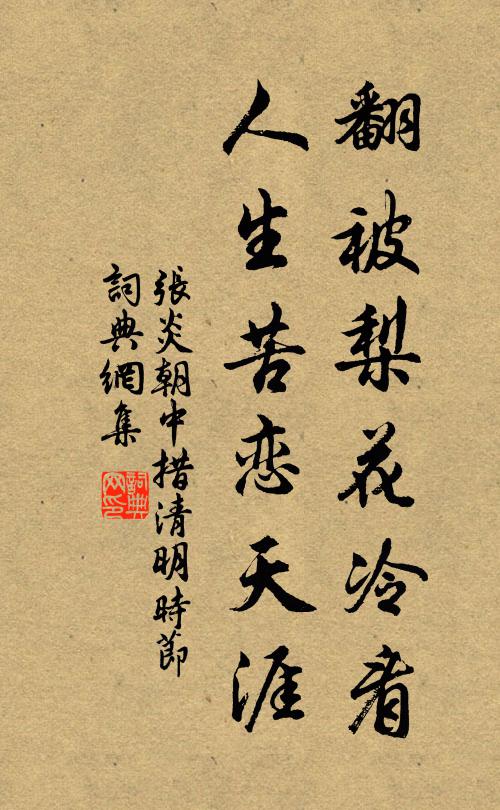 翻被梨花冷看
人生苦恋天涯
張炎朝中措清明時節
詞典網集
詞典
网印